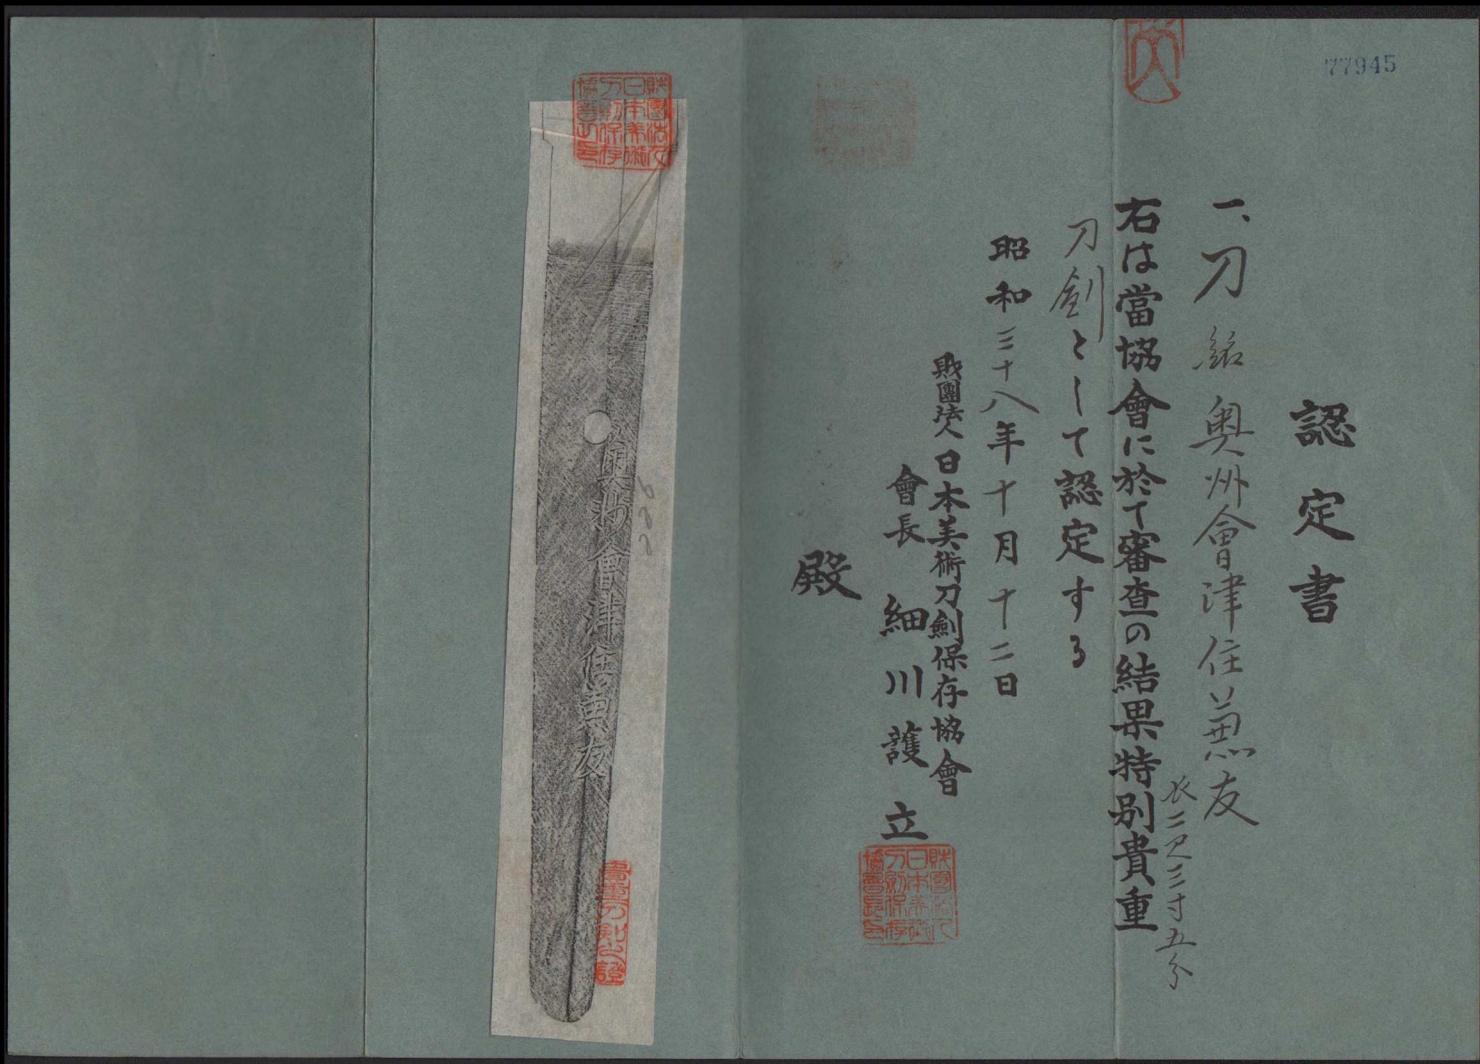 77945
認定書
一、刀 銘 奥州會津住兼友
長二尺三寸五分
右は當協會に於て審査の結果特別貴重
刀劍として認定する
昭和三十八年十月十二日
財團法人日本美術刀劍保存協會
會長 細川護立
殿
財團法人日本美術刀劍保存協會長之印
財團法人日本美術刀劍保存協會之印
奥州會津住兼友
貴重刀劍之證